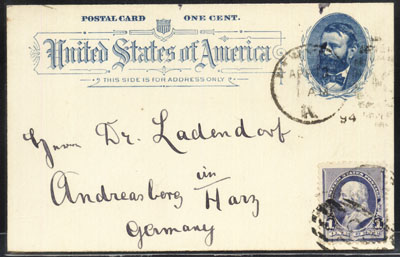 POSTAL CARD ONE CENT.
United States of America
THIS SIDE IS FOR ADDRESS ONLY
94
Herrn Dr. Ladendorf
in
Andreasberg Harz
Germany
1 1